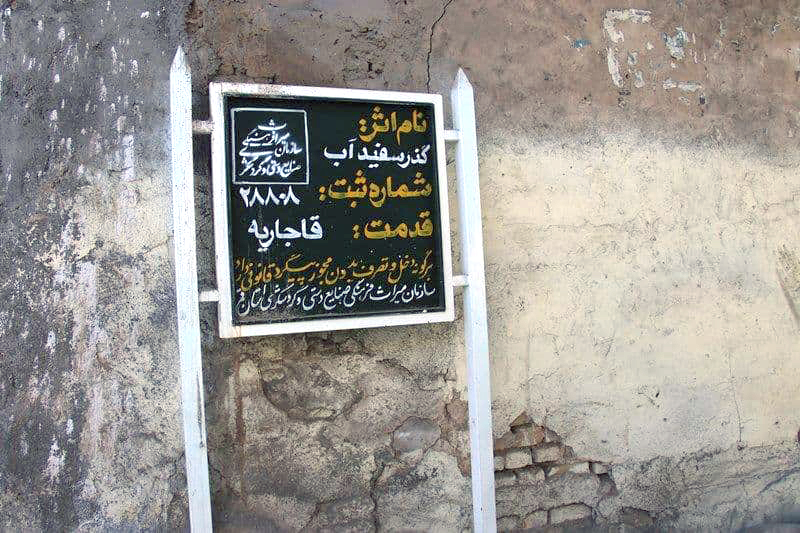 نام اثر:
گذر سفید آب
شماره ثبت:
۲۸۸۰۸
قدمت:
قاجاریه
میراث فرهنگی
سازمان
صنایع دستی و گردشگری
هرگونه دخل و تصرف بدون مجوز پیگرد قانونی دارد
سازمان میراث فرهنگی صنایع دستی و گردشگری استان